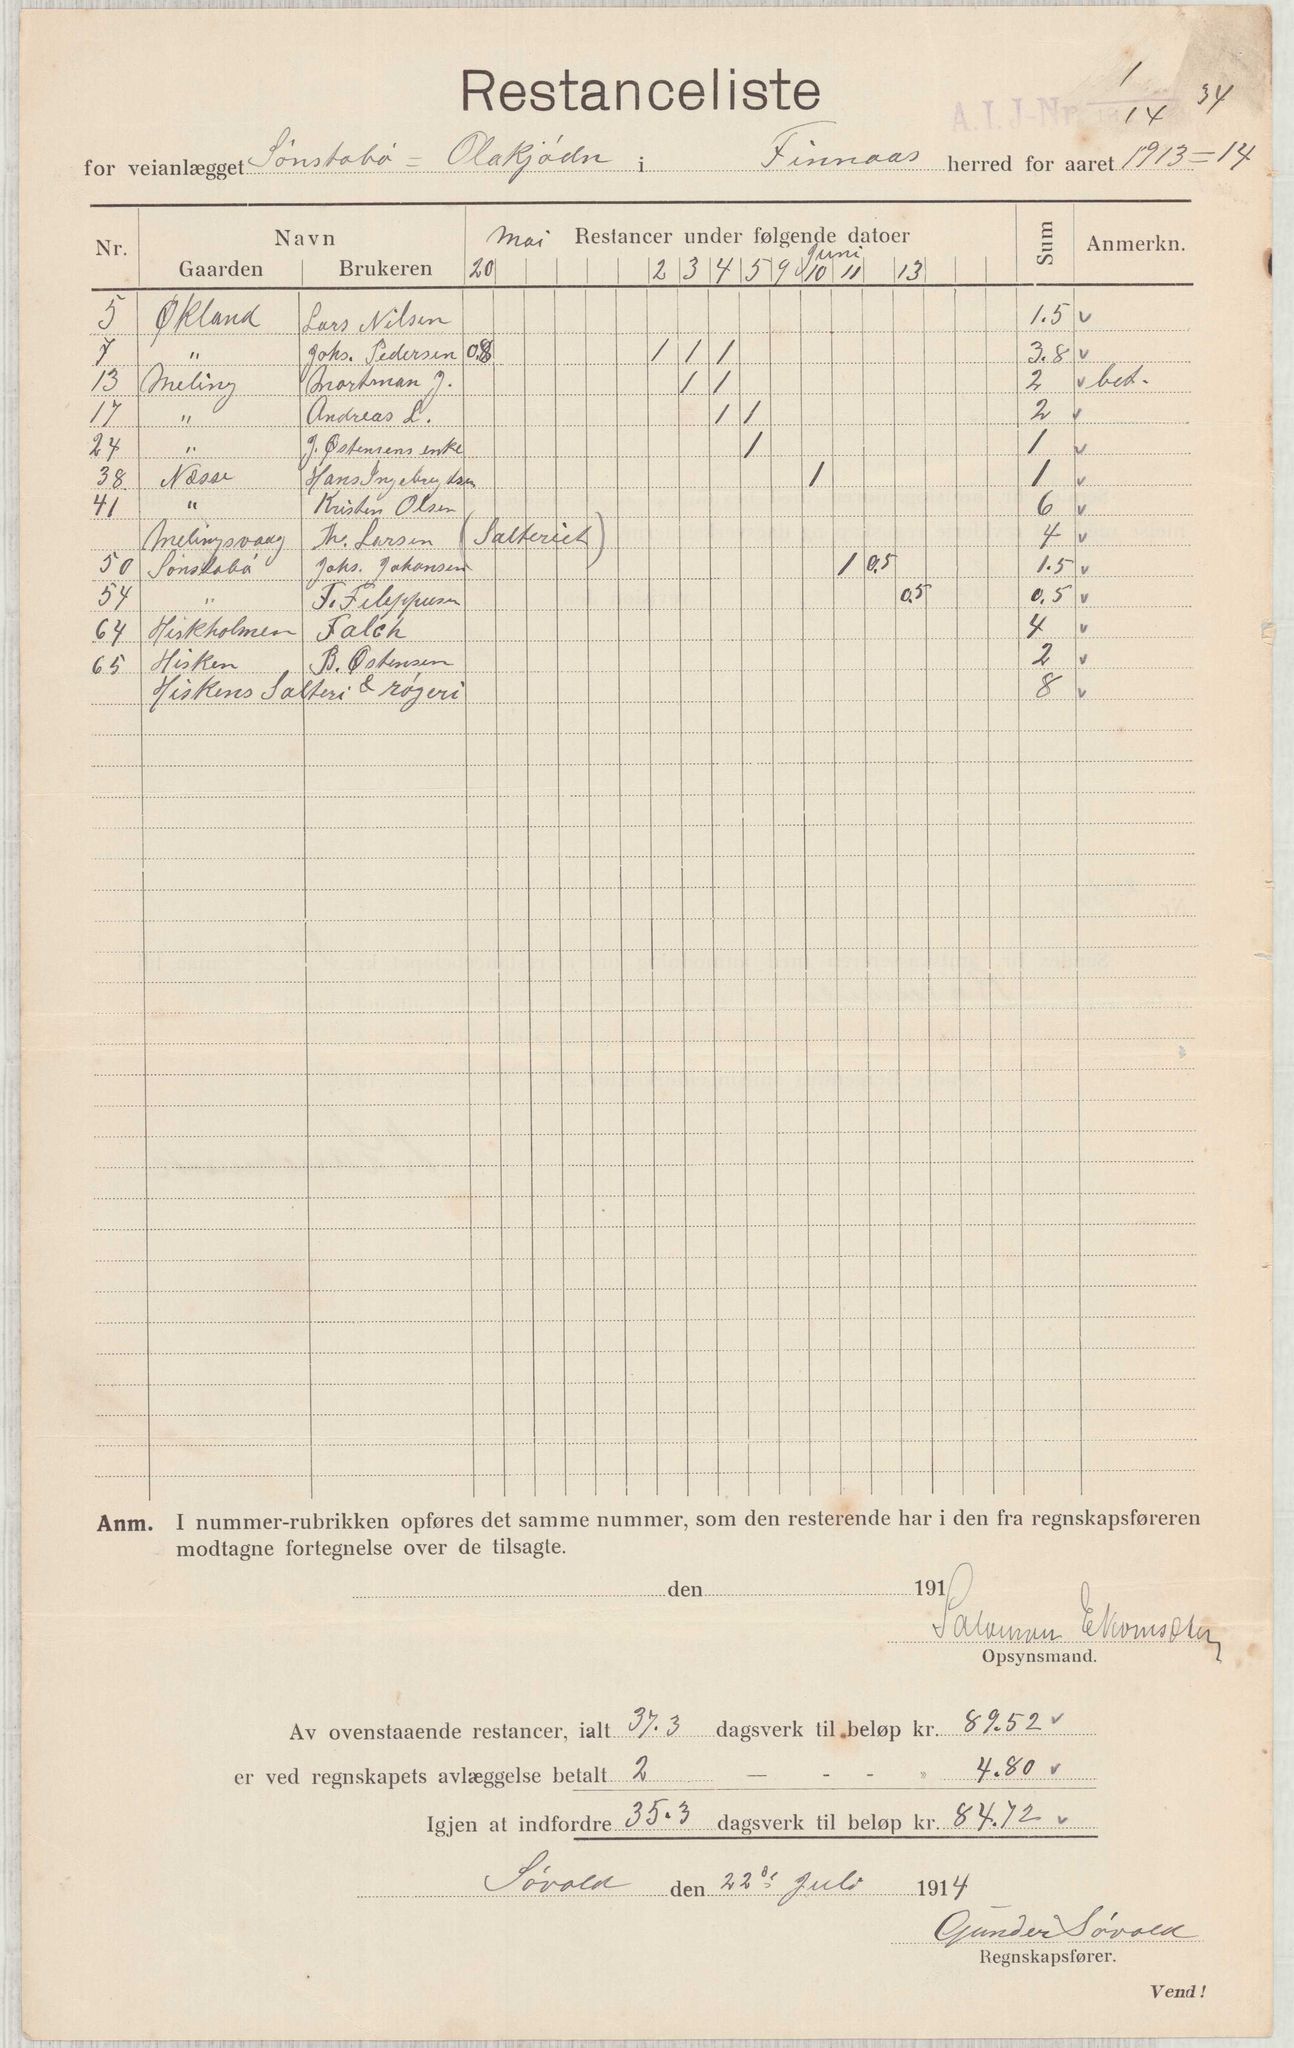 Restanceliste
A.I.J-Nr. 1/14 34
for veianlægget Sønstabø = Olakjødn i Finnaas herred for aaret 1913=14
Nr. Navn Mai Restancer under følgende datoer Sum Anmerkn.
Juni
Gaarden Brukeren 20 2 3 4 5 9 10 11 13
5 Økland Lars Nilsen 1.5 v
7 " Johs. Pedersen 0.8 1 1 1 3.8 v
13 Meling Mortman J. 1 1 2 v bet.
17 " Andreas L. 1 1 2 v
24 " J. Østensens enke 1 1 v
38 Næsse Hans Ingebrygtsen 1 1 v
41 " Kristen Olsen 6 v
Melingsvaag Th. Larsen (Salteriet) 4 v
50 Sønstabø Johs. Johansen 1 0.5 1.5 v
54 " F. Filippusen 0.5 0.5 v
64 Hiskholmen Falch 4 v
65 Hisken B. Østensen 2 v
Hiskens Salteri & røgeri 8 v
Anm. I nummer-rubrikken opføres det samme nummer, som den resterende har i den fra regnskapsføreren
modtagne fortegnelse over de tilsagte.
den 191
Salomon
Opsynsmand.
Av ovenstaaende restancer, ialt 37.3 dagsverk til beløp kr. 89.52 v
er ved regnskapets avlæggelse betalt 2 — - - » 4.80 v
Igjen at indfordre 35.3 dagsverk til beløp kr. 84.72 v
Søvold den 22de Juli 1914
Gunder Søvold
Regnskapsfører.
Vend!